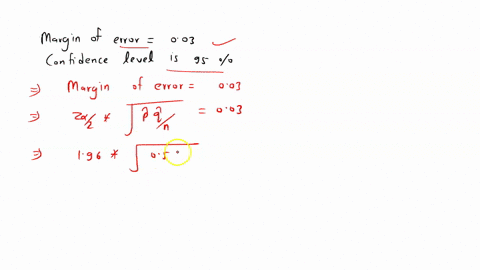 Margin of error = 0.03 ✓
Confidence level is 95 %
⇒ Margin of error = 0.03
⇒ Zα/2 * √p̂ q̂/n = 0.03
⇒ 1.96 * √0.5